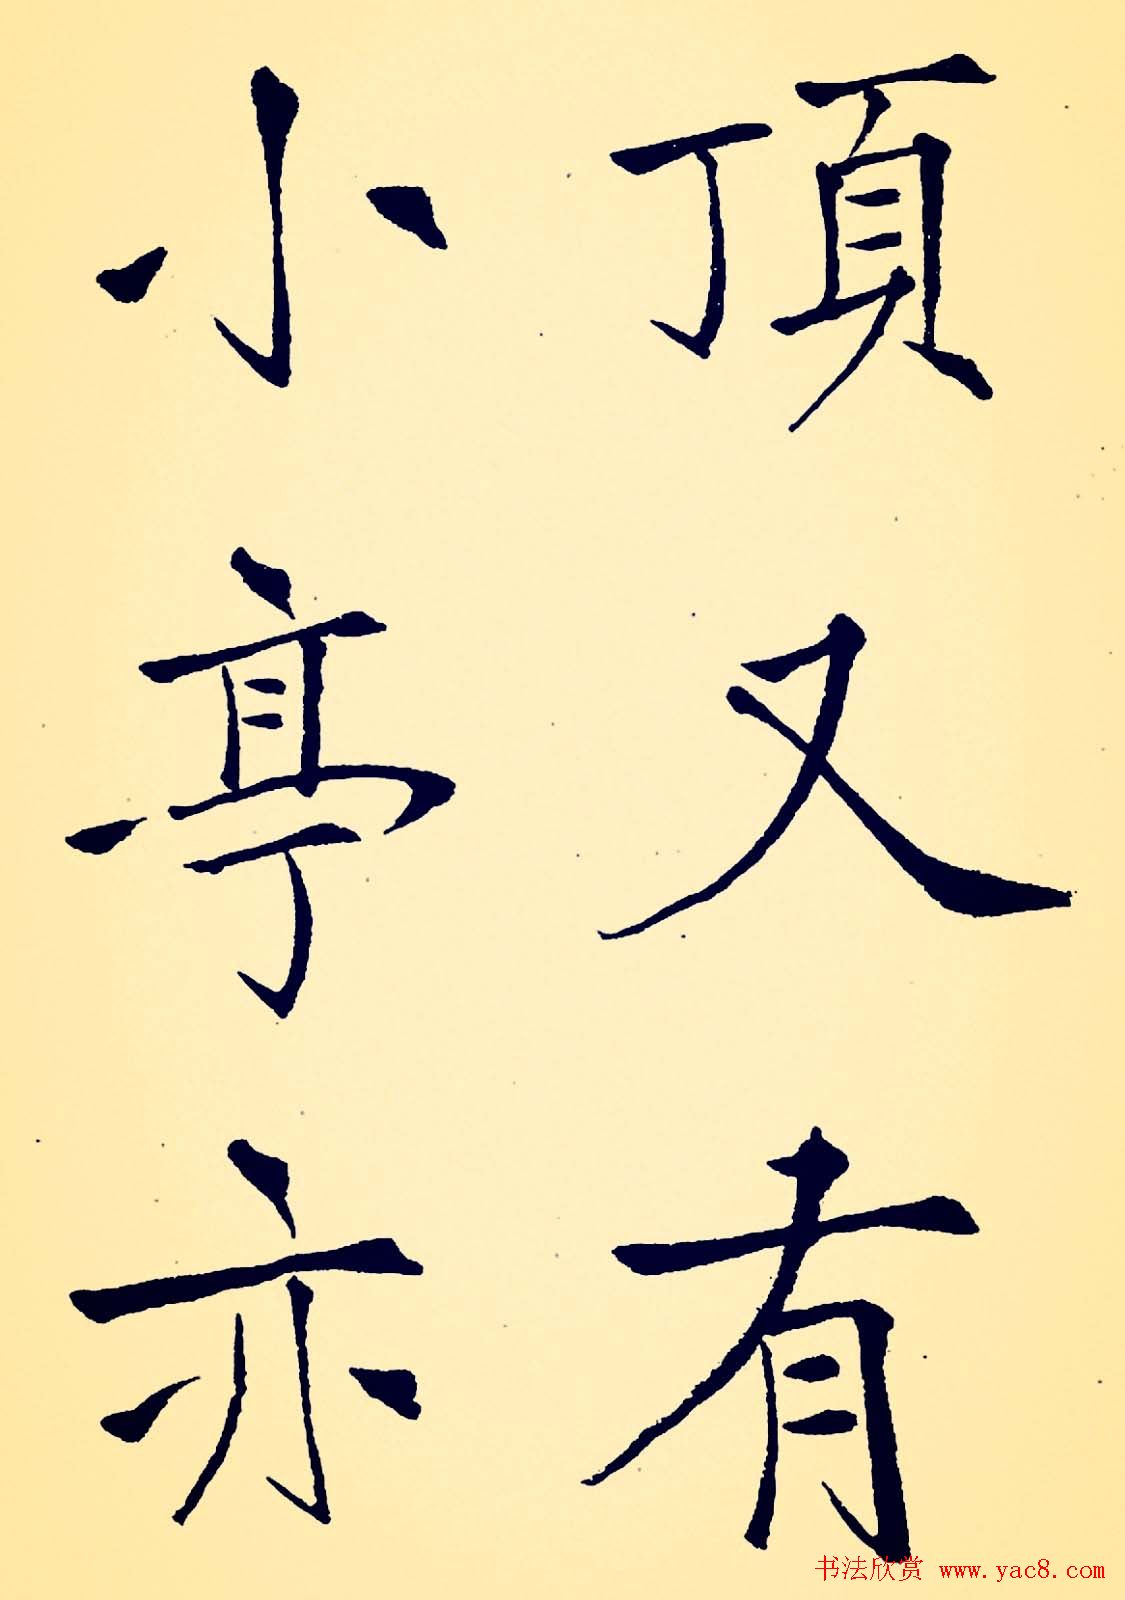 頂又有
小亭亦
书法欣赏 www.yac8.com